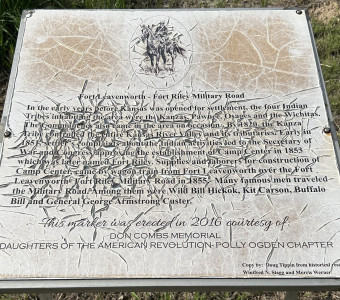 Fort Leavenworth - Fort Riley Military Road
In the early years before Kansas was opened for settlement, the four Indian
Tribes inhabiting the area were the Kanzas, Pawnee, Osages and the Wichitas.
The Comanches also came in the area on occasion. By 1820, the Kanza
Tribe controlled the entire Kansas River Valley and its tributaries. Early in
settler's complaints about the Indian activities led to the Secretary of
War approving the establishment of Camp Center in 1853
which was later named Fort Riley. Supplies and laborers for construction of
Camp Center, came by wagon train from Fort Leavenworth over the Fort
Leavenworth-Fort Riley Military Road in 1855. Many famous men traveled
the Military Road. Among them were Wild Bill Hickok, Kit Carson, Buffalo
Bill and General George Armstrong Custer.
This marker was erected in 2016 courtesy of:
DON COMBS MEMORIAL
DAUGHTERS OF THE AMERICAN REVOLUTION-POLLY OGDEN CHAPTER
Copy by: Doug Tippin from historical
Winifred N. Slagg and Marcia Werner